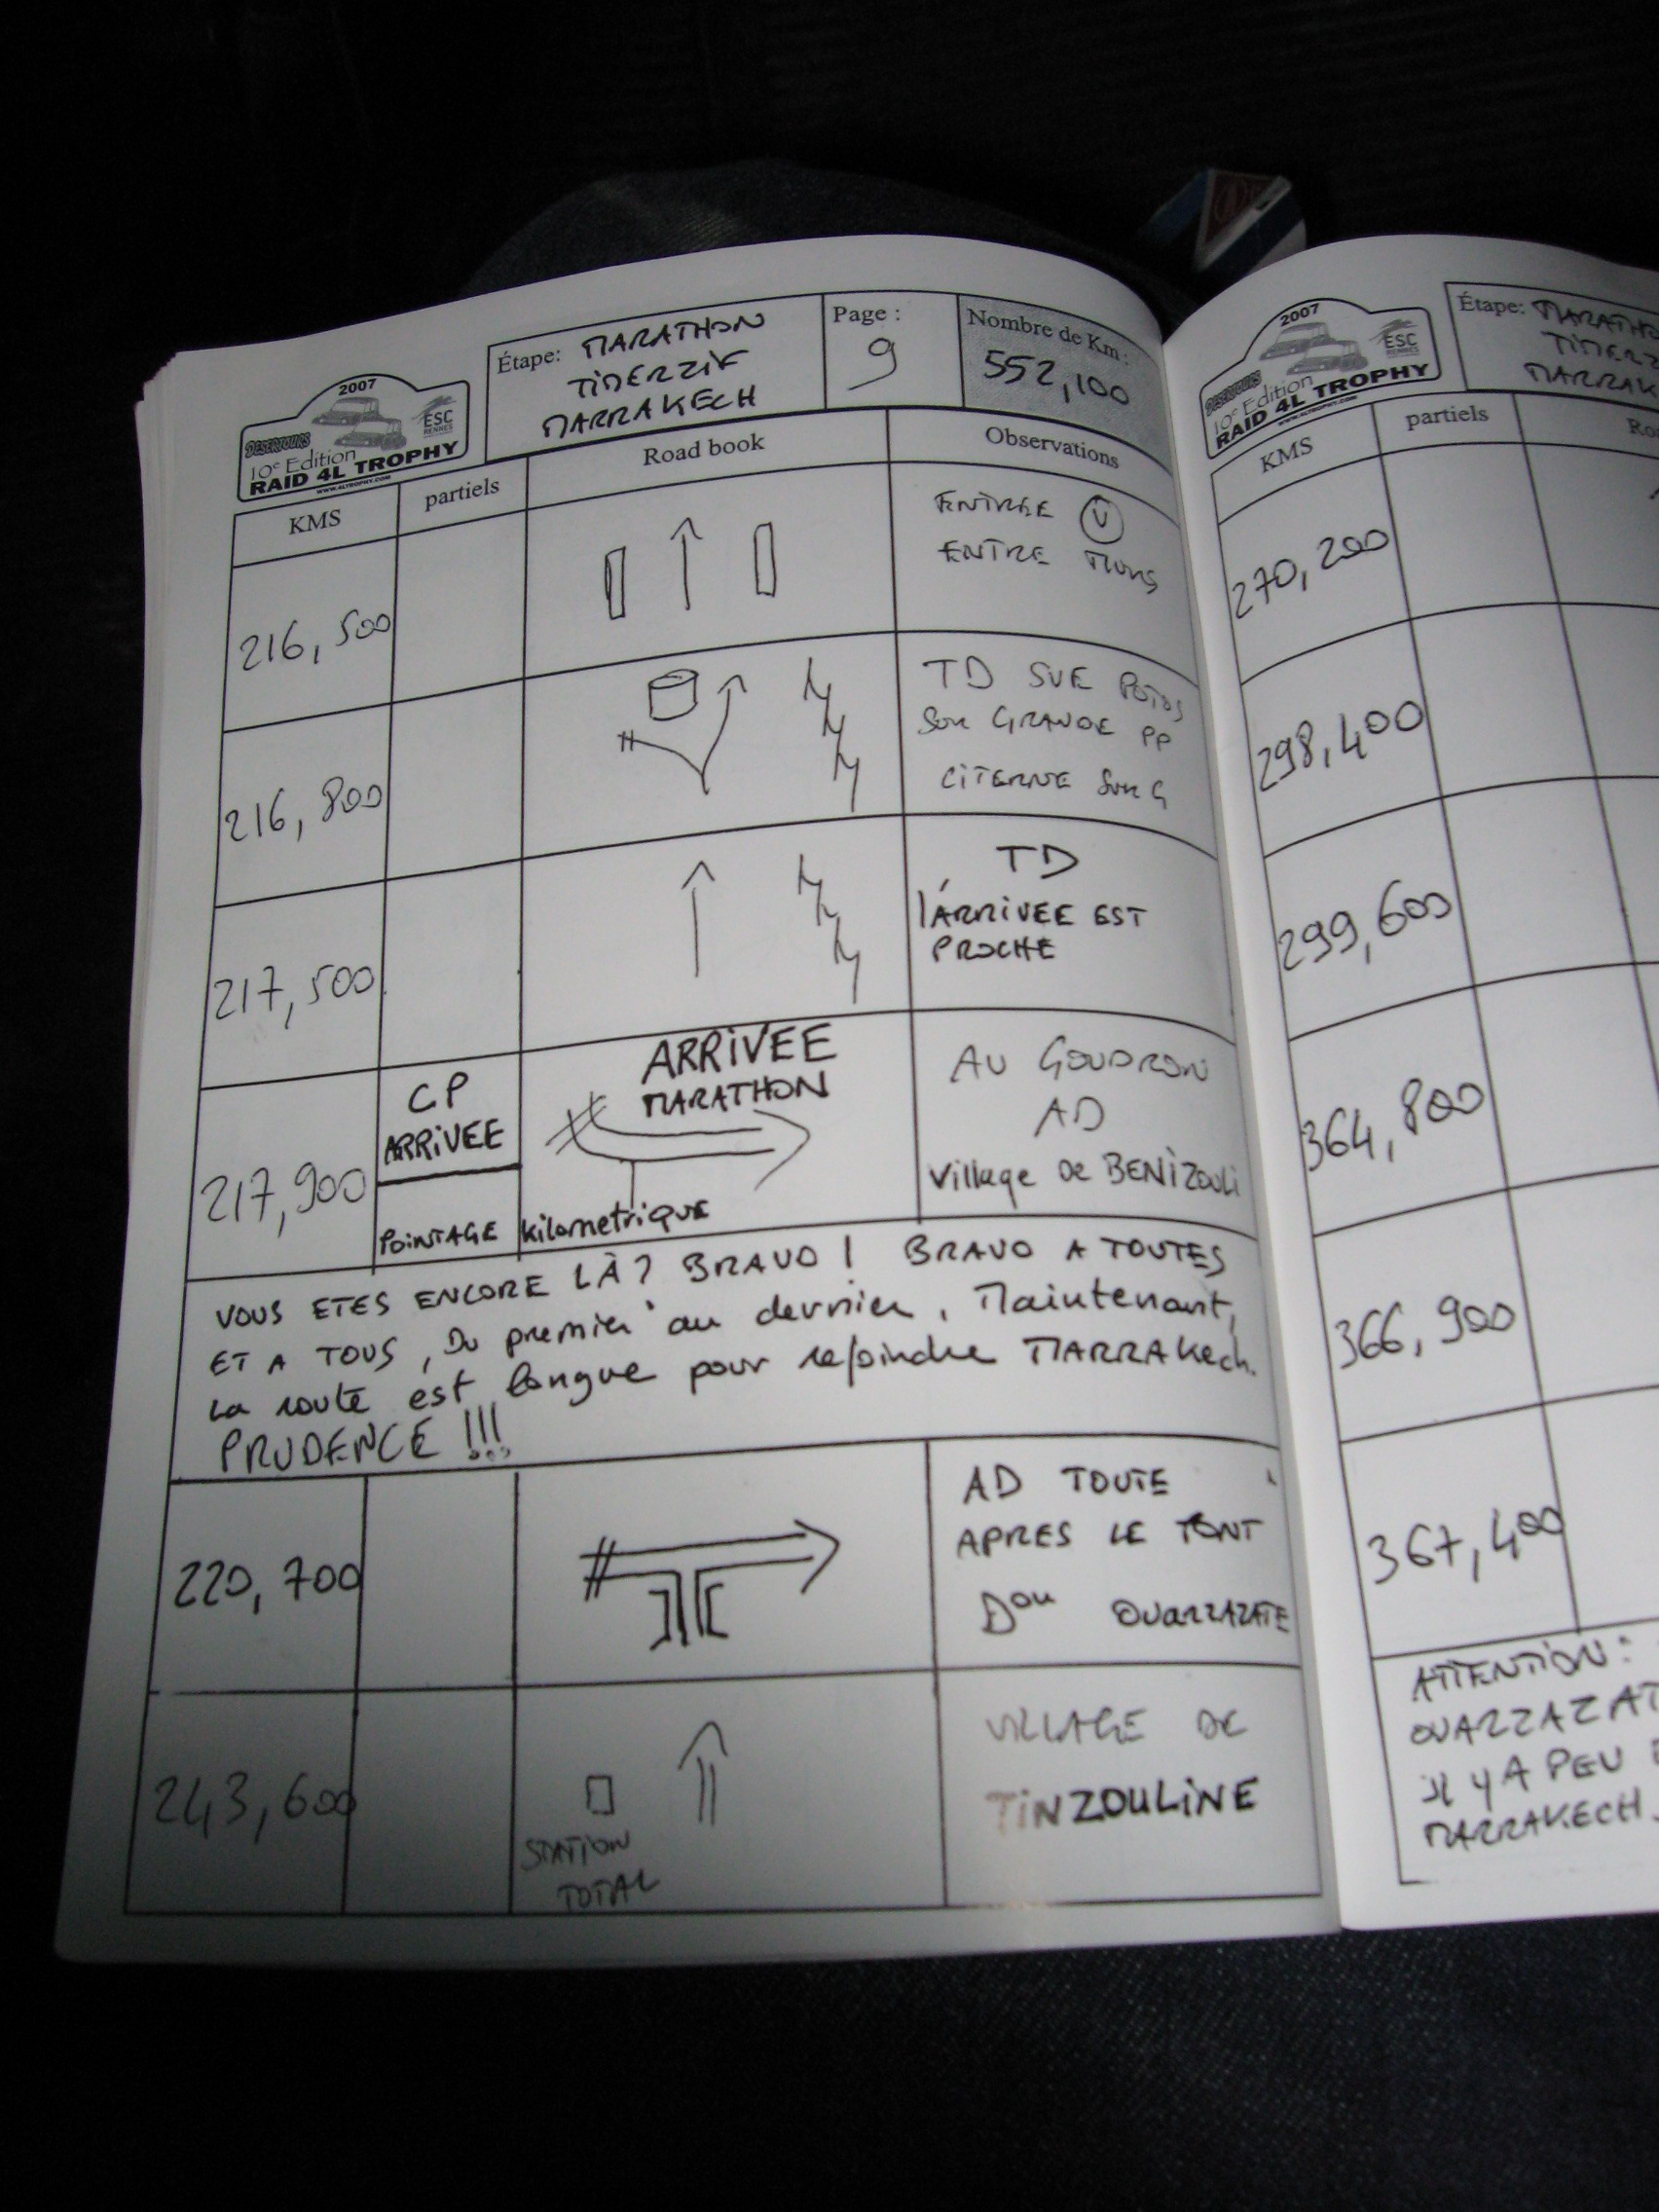 2007
DESERTOURS
ESC
RENNES
10e Edition
RAID 4L TROPHY
WWW.4LTROPHY.COM
Étape: MARATHON
TIMERZIF
MARRAKECH
Page :
9
Nombre de Km :
552,100
KMS
partiels
Road book
Observations
216,500
ENTREE V
ENTRE MURS
216,800
TD SUE POTOS
SUR GRANDE PP
CITERNE SUR G
217,500
TD
l'ARRIVEE EST
PROCHE
217,900
CP
ARRIVEE
POINTAGE kilometrique
ARRIVEE
MARATHON
AU GOUDRON
AD
Village de BENIZOULI
VOUS ETES ENCORE LÀ? BRAVO! BRAVO A TOUTES
ET A TOUS, Du premier au dernier. Maintenant,
La route est longue pour rejoindre MARRAKech.
PRUDENCE !!!
220,700
AD TOUTE
APRES LE PONT
Dou OUARZAZATE
243,600
STATION
TOTAL
VILLAGE DE
TINZOULINE
2007
DESERTOURS
ESC
RENNES
10e Edition
RAID 4L TROPHY
Étape:
KMS
partiels
270,200
298,400
299,600
364,800
366,900
367,400
ATTENTION:
IL Y A PEU
MARRAKECH